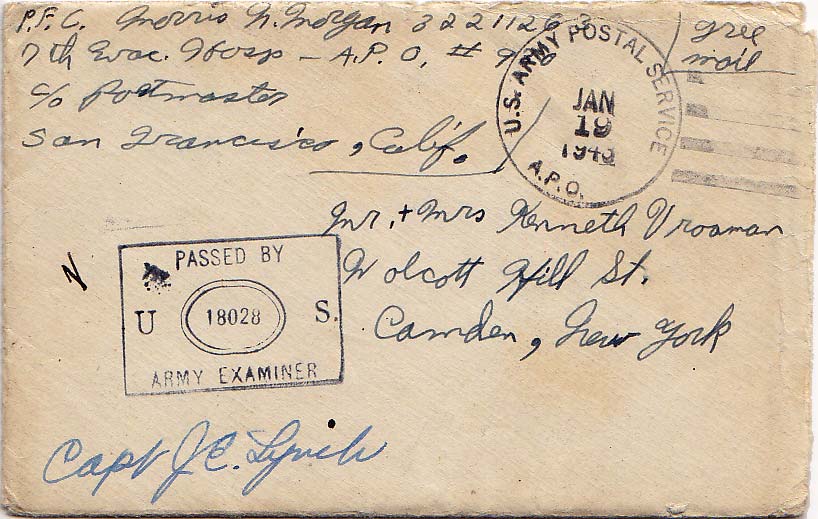 P.F.C. Morris N. Morgan 32211263
7th Evac. Hosp - A.P.O. #
c/o Postmaster
San Francisco, Calif.
Free
mail
U.S. ARMY POSTAL SERVICE
JAN
19
1943
A.P.O.
Mr. + Mrs Kenneth Vrooman
Wolcott Hill St.
Camden, New York
N
PASSED BY
U 18028 S.
ARMY EXAMINER
Capt J C. Lynch